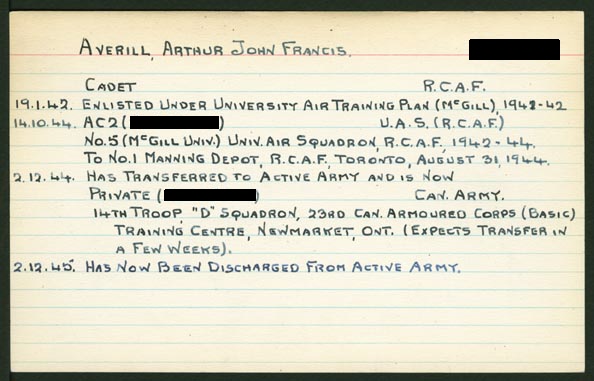 AVERILL, ARTHUR JOHN FRANCIS.
CADET R.C.A.F.
19.1.42. ENLISTED UNDER UNIVERSITY AIR TRAINING PLAN (McGILL), 1942-42
14.10.44. AC2 ( ) U.A.S. (R.C.A.F.)
No.5 (McGILL UNIV.) UNIV. AIR SQUADRON, R.C.A.F., 1942-44.
TO No.1 MANNING DEPOT, R.C.A.F., TORONTO, AUGUST 31, 1944.
2.12.44. HAS TRANSFERRED TO ACTIVE ARMY AND IS NOW
PRIVATE ( ) CAN. ARMY.
14TH TROOP, "D" SQUADRON, 23RD CAN. ARMOURED CORPS (BASIC)
TRAINING CENTRE, NEWMARKET, ONT. (EXPECTS TRANSFER IN
A FEW WEEKS).
2.12.45. HAS NOW BEEN DISCHARGED FROM ACTIVE ARMY.